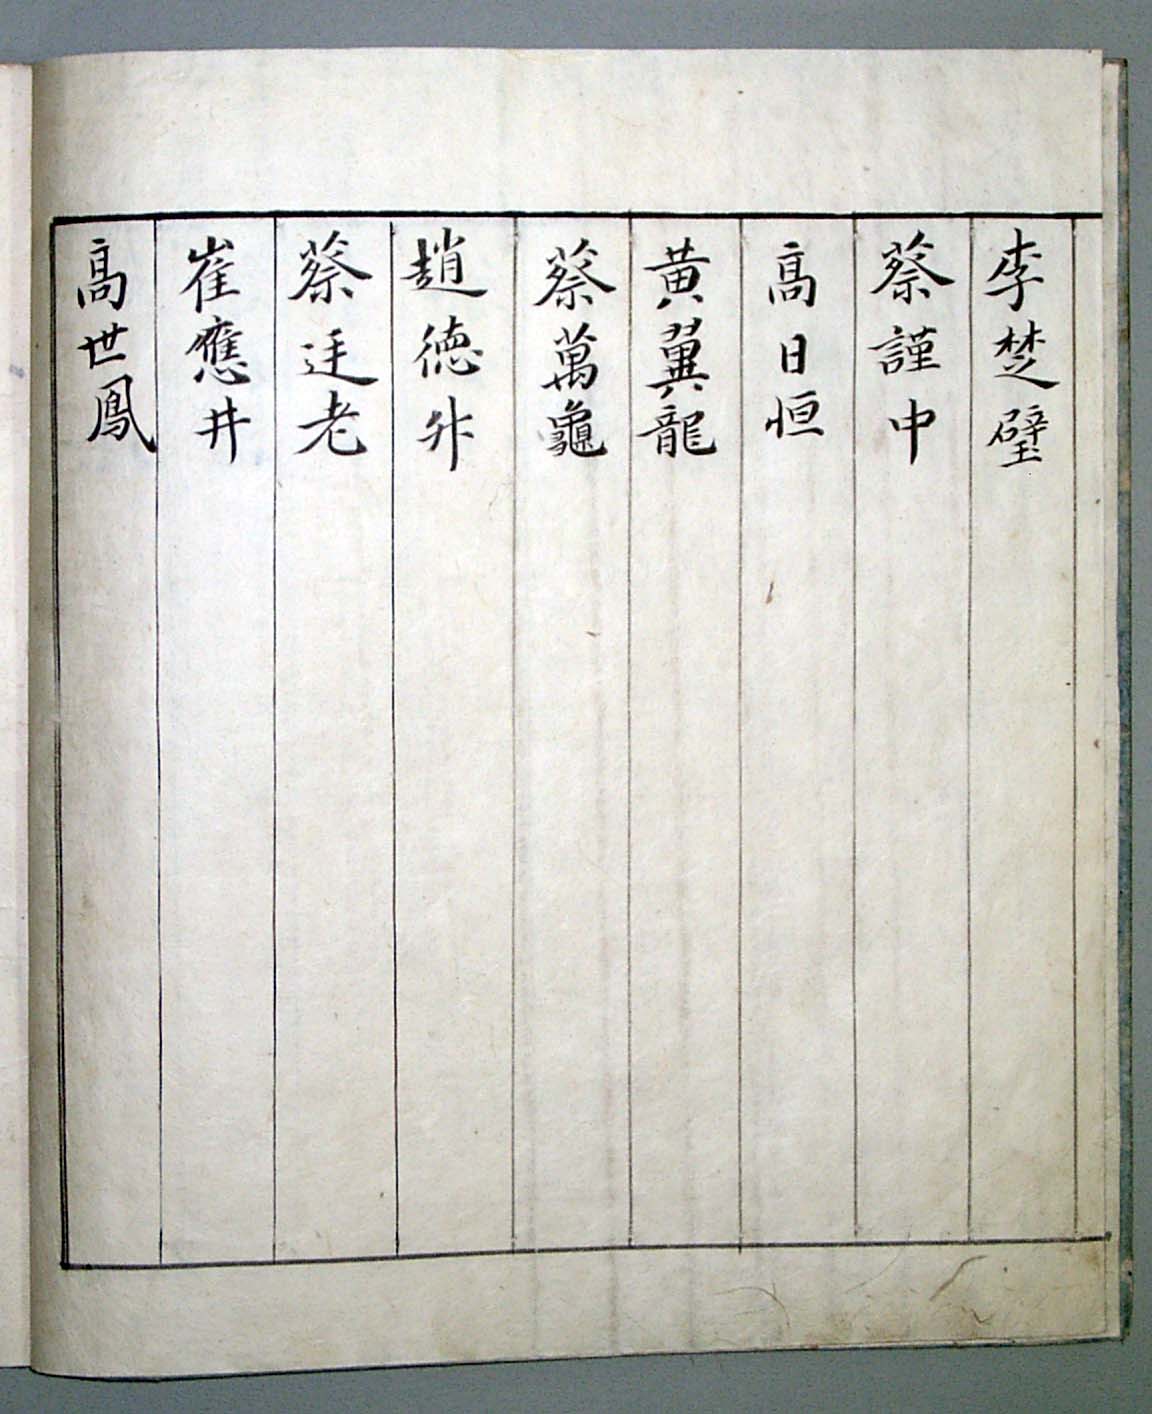 李楚璧
蔡謹中
高日恒
黄翼龍
蔡萬龜
趙德升
蔡廷老
崔應井
高世鳳